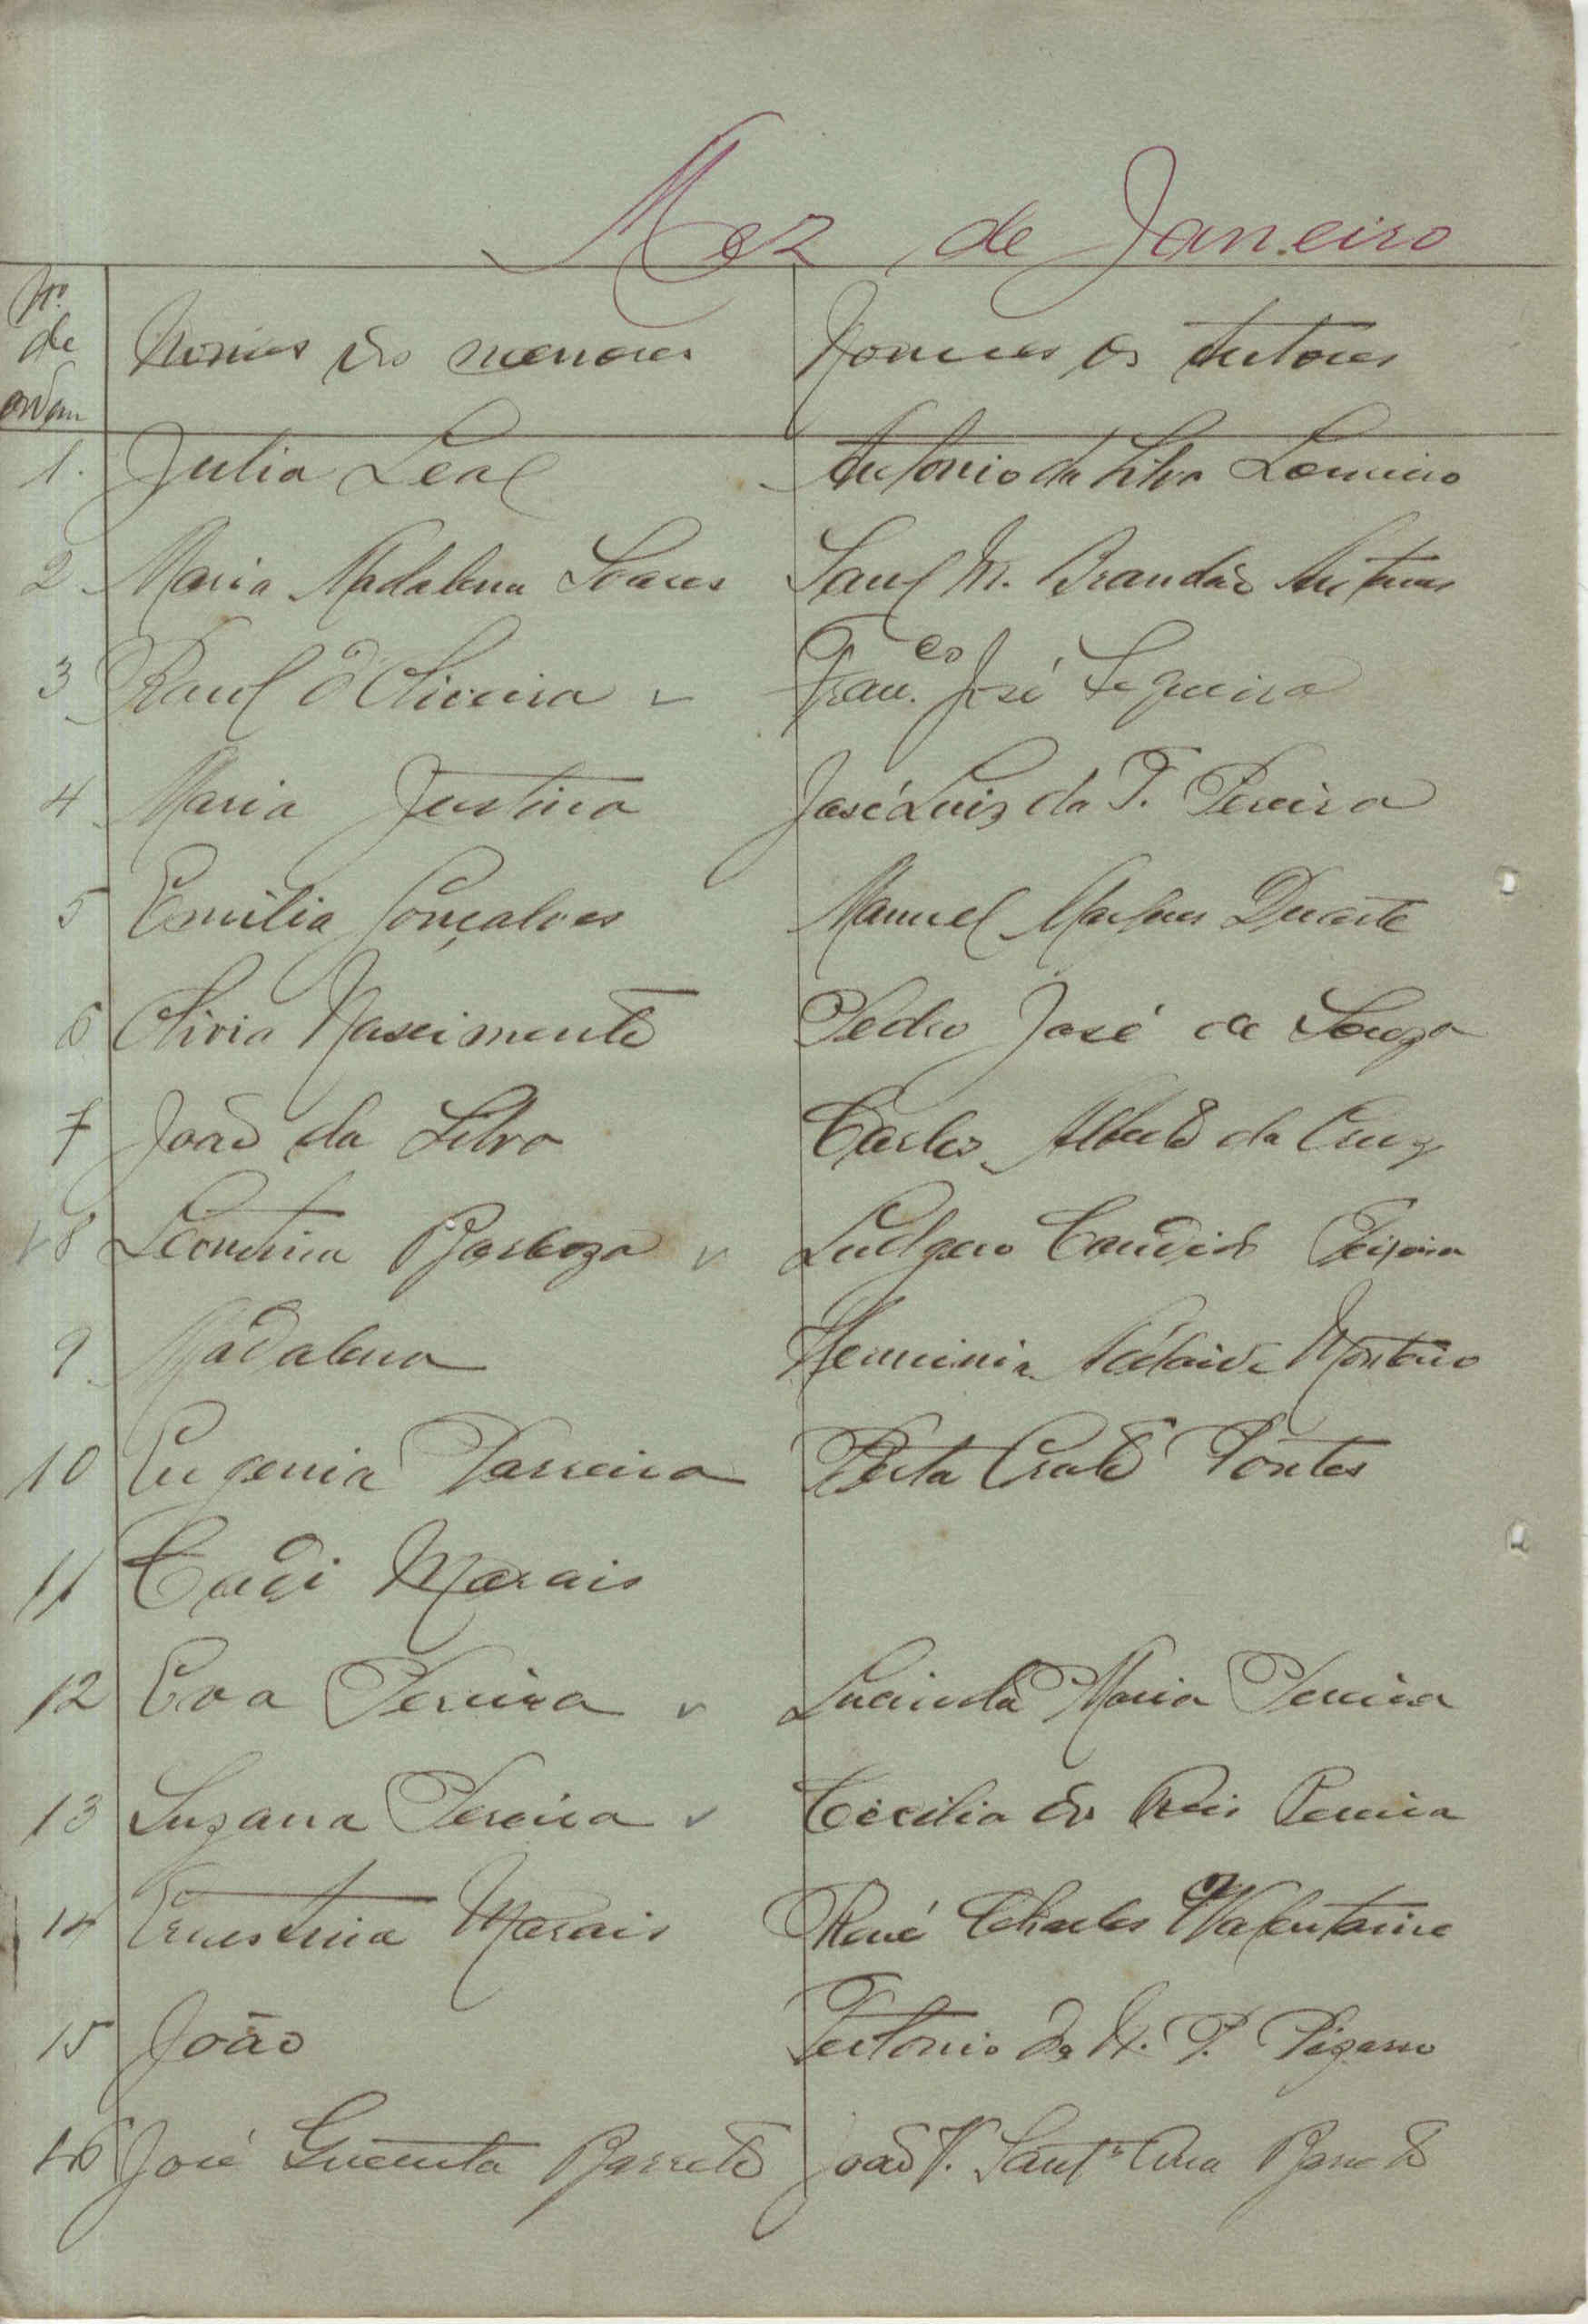 Mez de Janeiro
Nº de ordem
Nomes dos menores Nomes os tutores
1. Julia Leal Antonio da Silva Loureiro
2. Maria Madalena Soares Saul M. Brandão Antunes
3 Raul d'Oliveira Fran.co José Sequeira
4 Maria Justina José Luiz da T. Pereira
5 Emilia Gonçalves Manuel Marques Duarte
6 Olivia Nascimento Pedro José de Souza
7 João da Silva Carlos Alberto da Cruz
8 Leontina Barboza Ludgero Candido Teixeira
9 Madalena Herminia Adelaide Monteiro
10 Eugenia Parreira Berta Pontes
11 Marais
12 Eva Pereira Lucinda Maria Pereira
13 Suzana Pereira Cecilia dos Reis Pereira
14 Ernestina Marais René Charles
15 João da P. Pizarro
16 José Barreto João V. Sant'Ana Barreto